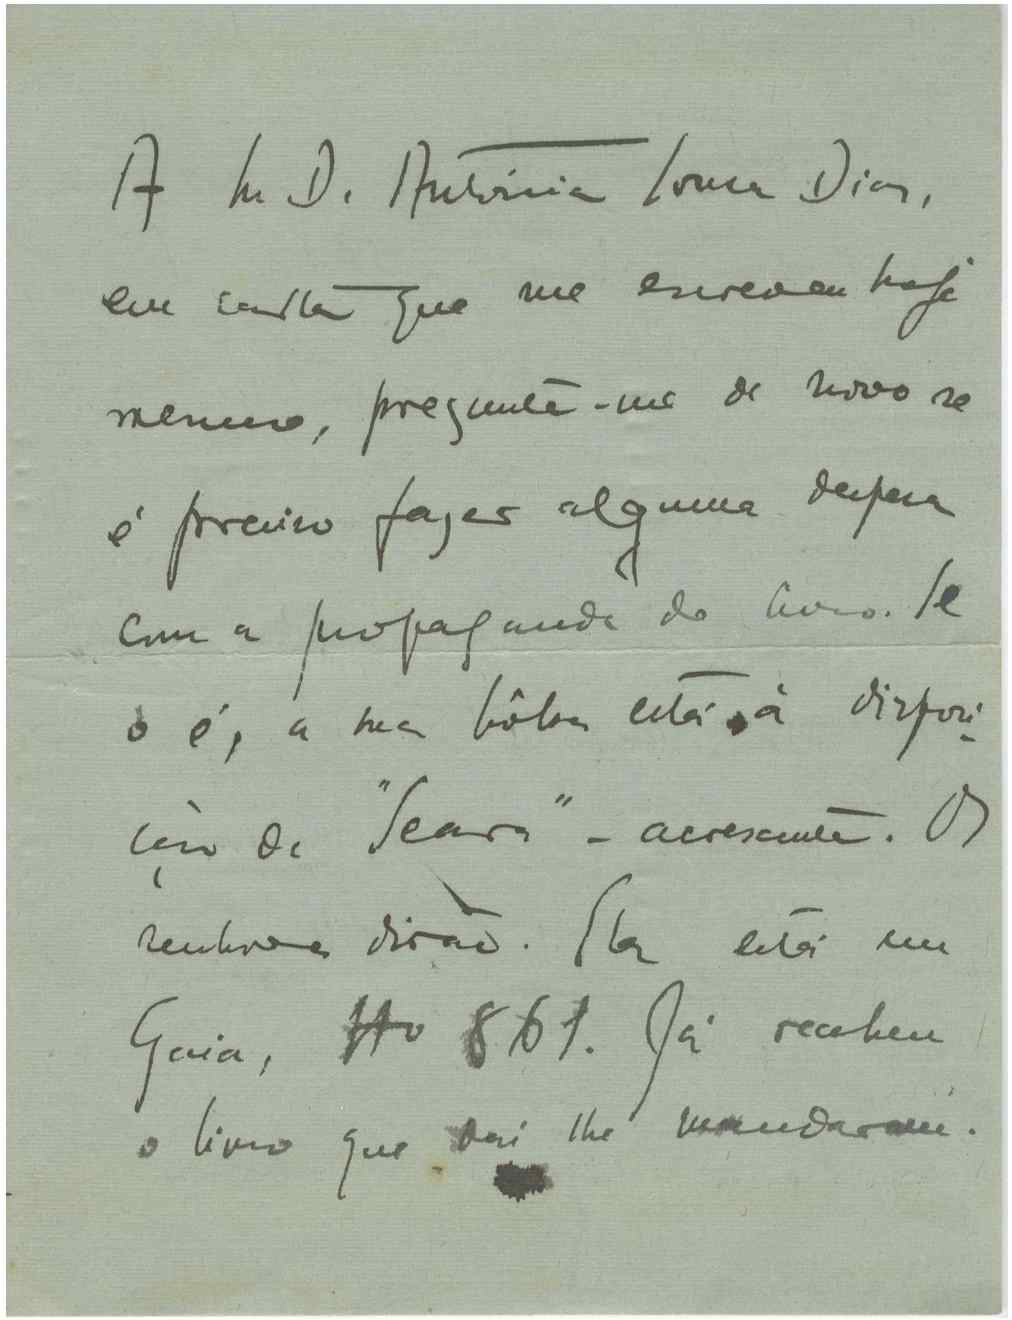 A Sr. D. Antónia Sousa Dias,
em carta que me escreveu hoje
mesmo, pregunta-me de novo se
é preciso fazer alguma despesa
com a propaganda do livro. Se
o é, a sua bôlsa está à disposi-
ção da "Seara" - acrescenta. Os
senhores dirão. Ela está em
Gaia, 861. Já recebeu
o livro que daí lhe mandaram.